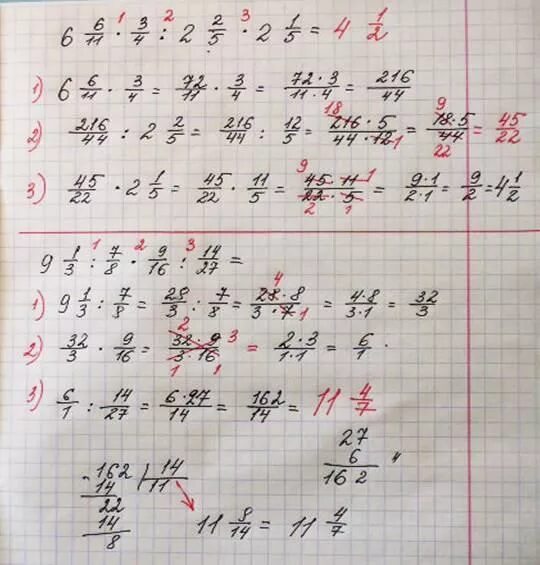 6 6/11 · 3/4 : 2 2/5 · 2 1/5 = 4 1/2
1 2 3
1) 6 6/11 · 3/4 = 72/11 · 3/4 = 72·3/11·4 = 216/44
2) 216/44 : 2 2/5 = 216/44 : 12/5 = 216·5/44·12 = 18·5/44 = 45/22
18 1 9 22
3) 45/22 · 2 1/5 = 45/22 · 11/5 = 45·11/22·5 = 9·1/2·1 = 9/2 = 4 1/2
9 1 2 1
9 1/3 : 7/8 · 9/16 : 14/27 =
1 2 3
1) 9 1/3 : 7/8 = 28/3 : 7/8 = 28·8/3·7 = 4·8/3·1 = 32/3
4 1
2) 32/3 · 9/16 = 32·9/3·16 = 2·3/1·1 = 6/1 .
2 3 1 1
3) 6/1 : 14/27 = 6·27/14 = 162/14 = 11 4/7
27
6
162
162 14
14 11
22
14
8
11 8/14 = 11 4/7